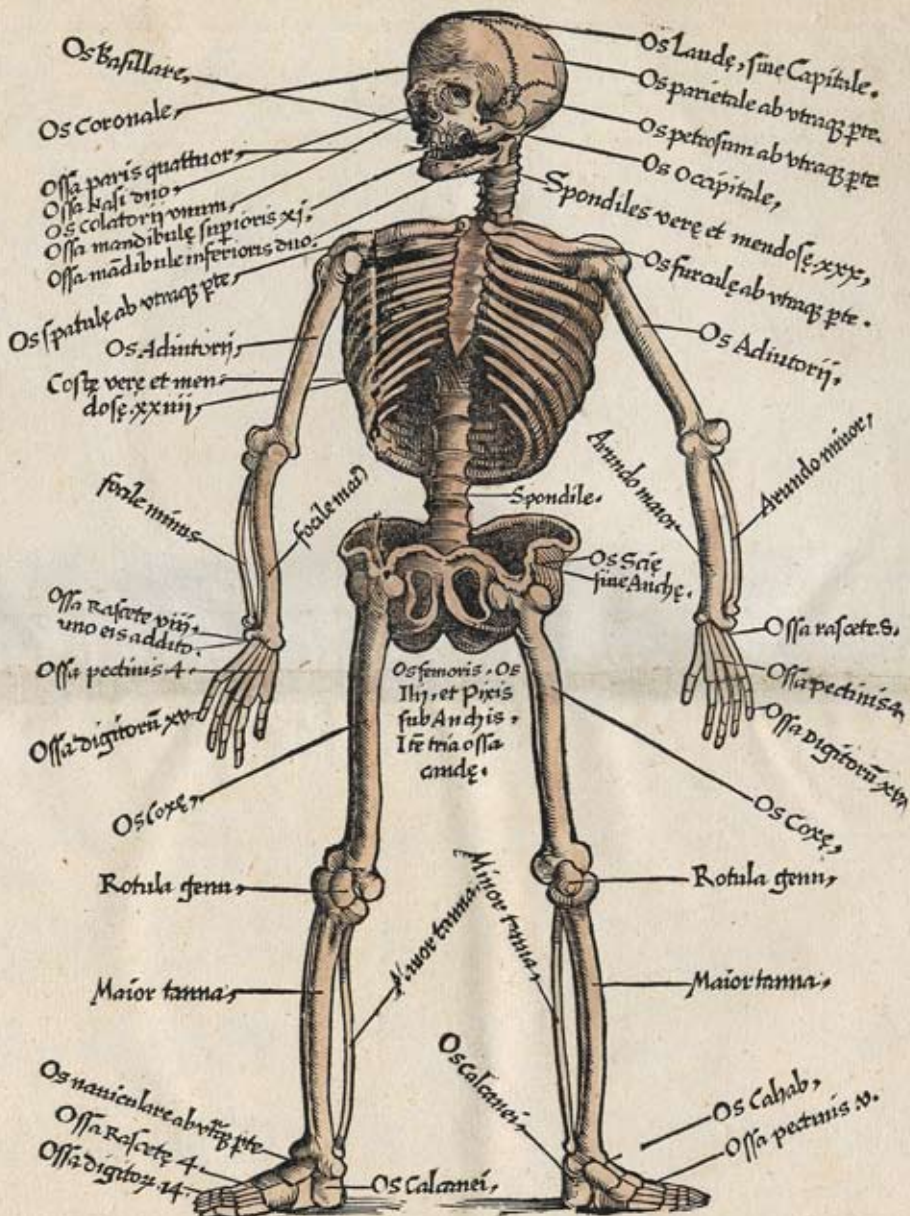 Os Basillare,
Os Coronale
Ossa paris quattuor,
Ossa Nasi duo
Os Colatorii vnum
Ossa mandibulę supioris xj,
Ossa mādibule inferioris duo.
Os spatulę ab vtraqꝫ pte
Os Adiutorij,
Costę verę et men-
dosę. xxiiij,
focile minus
focile maꝰ
Ossa Rascete viij,
uno eis addito.
Ossa pectinis 4.
Ossa digitorū xv.
Os Coxę,
Rotula genu,
Maior tanna,
Minor tanna,
Os nauiculare ab vtraqꝫ pte
Ossa Rascetę 4.
Ossa digitoꝝ. 14.
Os Calcanei,
Os Laudę, siue Capitale.
Os parietale ab vtraqꝫ pte.
Os petrosum ab vtraqꝫ pte
Os Occipitale,
Spondiles verę et mendosę. xxx,
Os furculę ab vtraqꝫ pte.
Os Adiutorij.
Arundo maior
Arundo minor,
Spondile.
Os Scię
siue Anchę.
Ossa rascete. 8.
Ossa pectinis 4.
Ossa Digitorū
Os femoris. Os
Ilij, et Pixis
sub Anchis,
Itē tria ossa
caudę.
Os Coxę,
Rotula genu,
Minor tanna,
Maior tanna,
Os Calcanei,
Os Cahab,
Ossa pectinis. v.